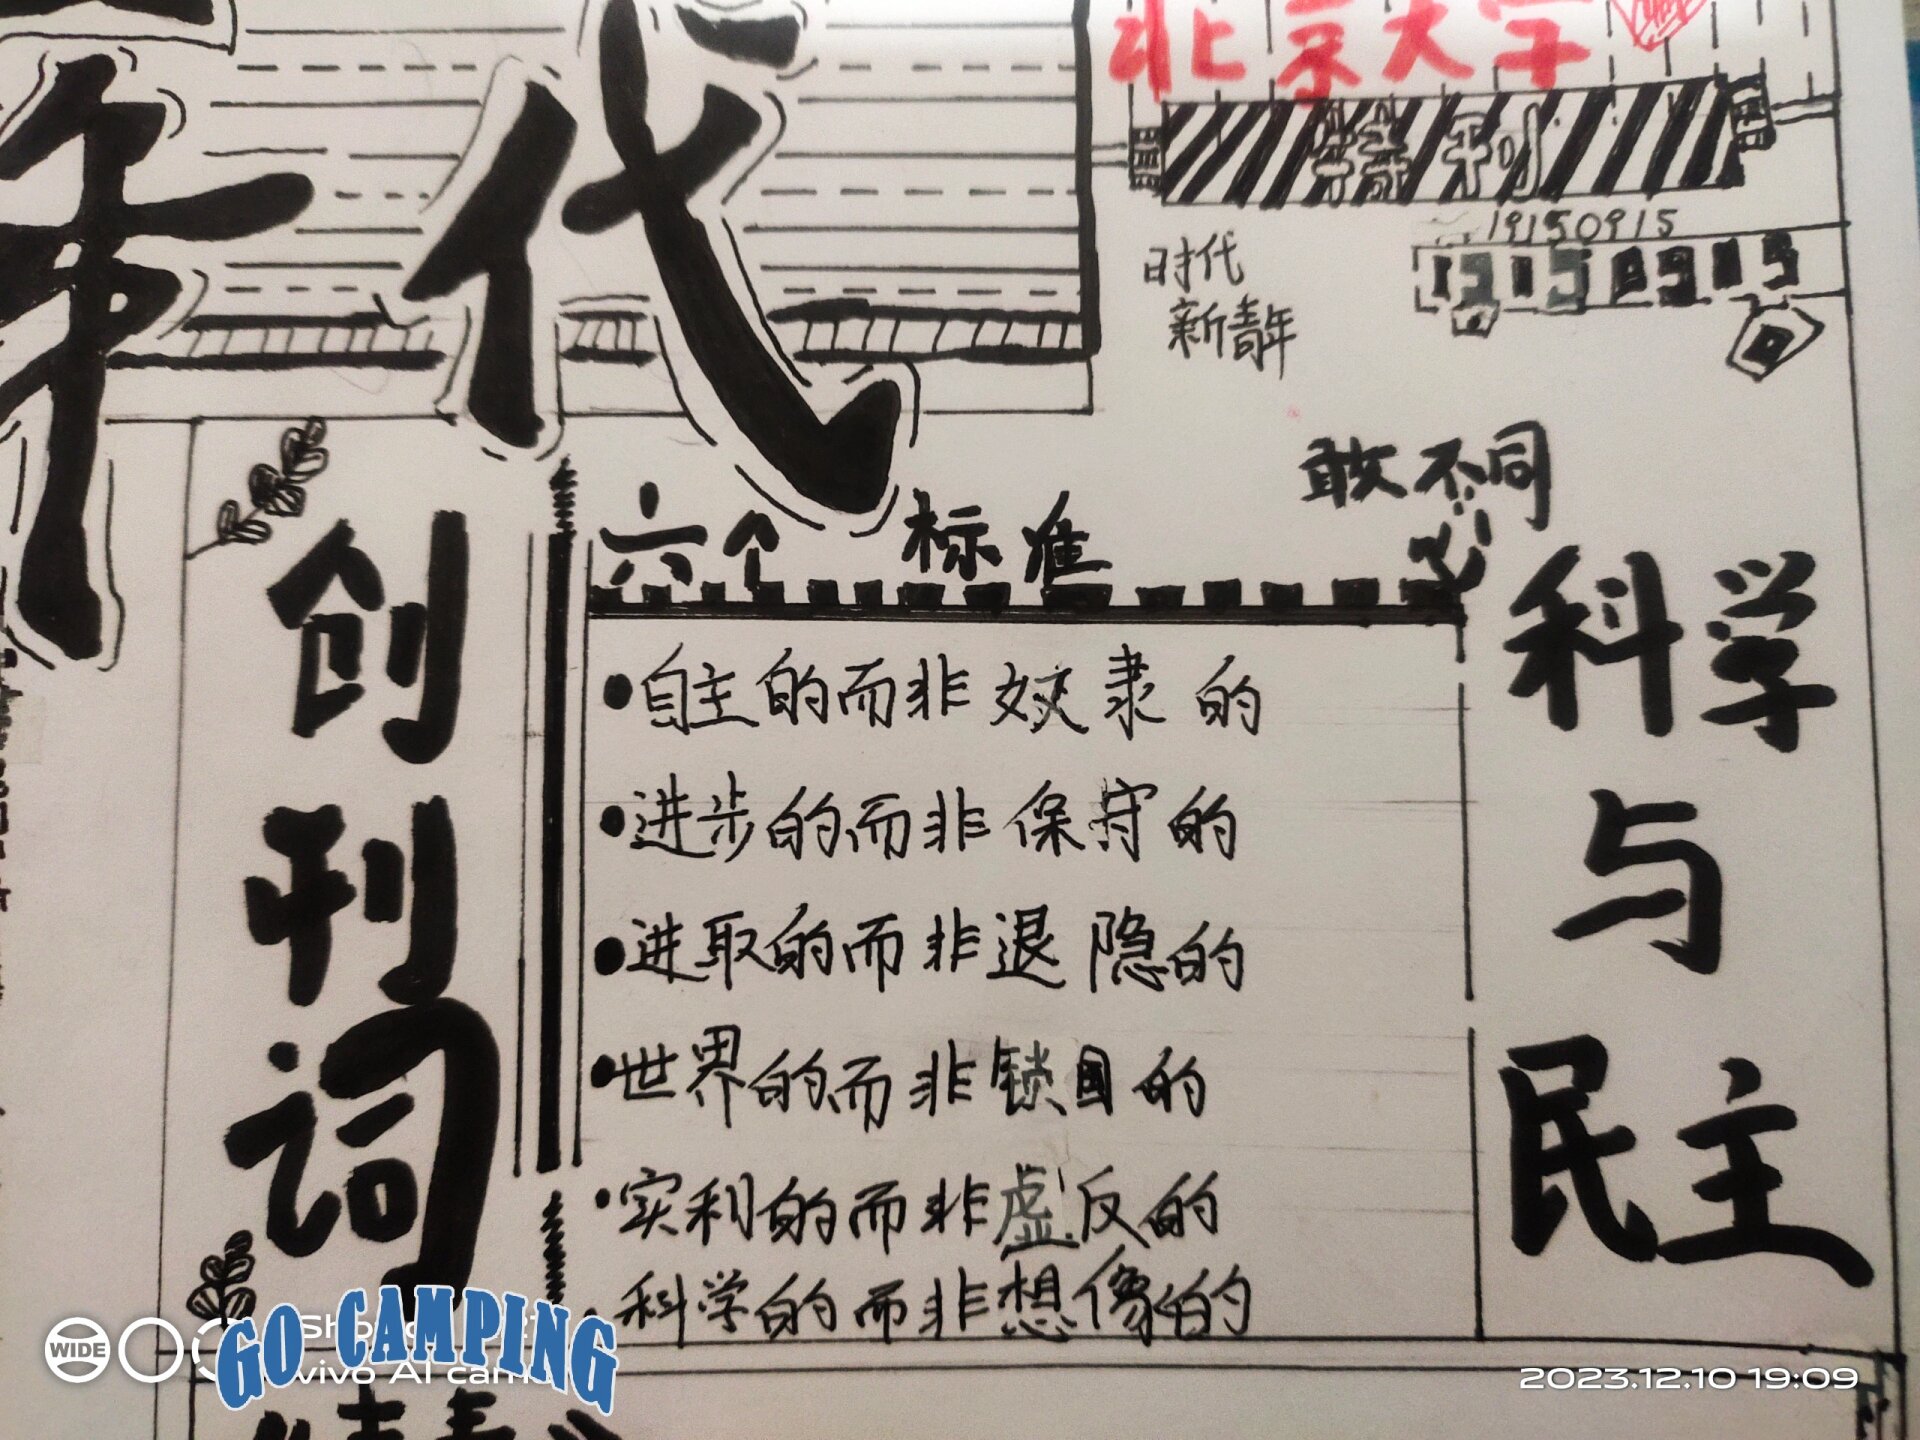 年代
北京大学
特刊
19150915
时代
新青年
敢不同
六个标准
创刊词
自主的而非奴隶的
进步的而非保守的
进取的而非退隐的
世界的而非锁国的
实利的而非虚反的
科学的而非想像的
科学
与
民主
WIDE
GO CAMPING
vivo AI cam
2023.12.10 19:09